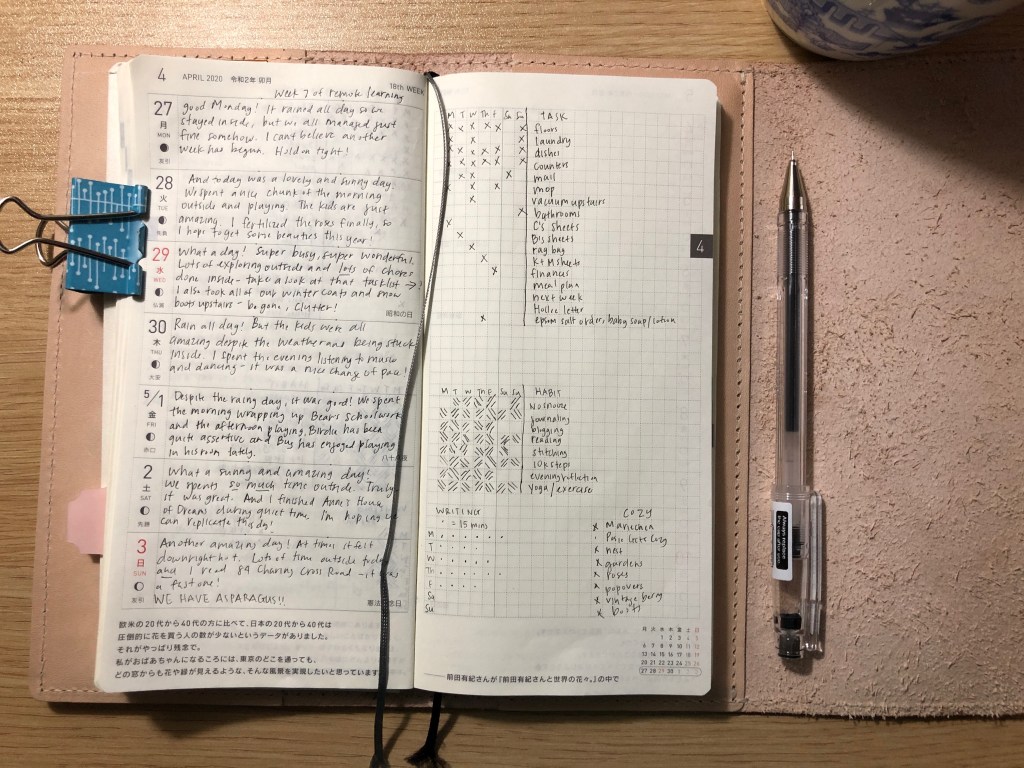 4 APRIL 2020 令和2年 卯月
18th WEEK
Week 7 of remote learning
27 月 MON 友引
good Monday! It rained all day so we
stayed inside, but we all managed just
fine somehow. I can't believe another
week has begun. Hold on tight!
28 火 TUE 先負
And today was a lovely and sunny day.
We spent a nice chunk of the morning
outside and playing. The kids are just
amazing. I fertilized the roses finally, so
I hope to get some beauties this year!
29 水 WED 仏滅
What a day! Super busy, super wonderful.
Lots of exploring outside and lots of chores
done inside - take a look at that task list →
I also took all of our winter coats and snow
boots upstairs - be gone, clutter!
昭和の日
30 木 THU 大安
Rain all day! But the kids were all
amazing despite the weather and being stuck
inside. I spent the evening listening to music
and dancing - it was a nice change of pace!
5/1 金 FRI 赤口
Despite the rainy day, it was good! We spent
the morning wrapping up Bear's schoolwork
and the afternoon playing. Birdie has been
quite assertive and Bus has enjoyed playing
in his room lately.
八十八夜
2 土 SAT 先勝
What a sunny and amazing day!
We spent so much time outside. Truly
it was great. And I finished Anne's House
of Dreams during quiet time. I'm hoping we
can replicate this day!
3 日 SUN 友引
Another amazing day! At times it felt
downright hot. Lots of time outside today
and I read 84 Charing Cross Road - it was
a fast one!
WE HAVE ASPARAGUS!!
憲法記念日
欧米の20代から40代の方に比べて、日本の20代から40代は
圧倒的に花を買う人の数が少ないというデータがありました。
それがやっぱり残念で。
私がおばあちゃんになるころには、東京のどこを通っても、
どの窓からも花や緑が見えるような、そんな風景を実現したいと思っています
M T W Th F Sa Su TASK
floors
laundry
dishes
counters
mail
mop
vacuum upstairs
bathrooms
C's sheets
B's sheets
rag bag
K+M sheets
finances
meal plan
next week
Hollie letter
epsom salt order, baby soap/lotion
4
M T W Th F Sa Su HABIT
No snooze
journaling
blogging
reading
stitching
10k steps
evening reflection
yoga/exercise
WRITING
· = 15 mins
M
T
W
Th
F
Sa
Su
COZY
x
x nest
x gardens
x roses
x popovers
x
x
月 火 水 木 金 土 日
1 2 3 4 5
6 7 8 9 10 11 12
13 14 15 16 17 18 19
20 21 22 23 24 25 26
27 28 29 30
──前田有紀さんが『前田有紀さんと世界の花々。』の中で